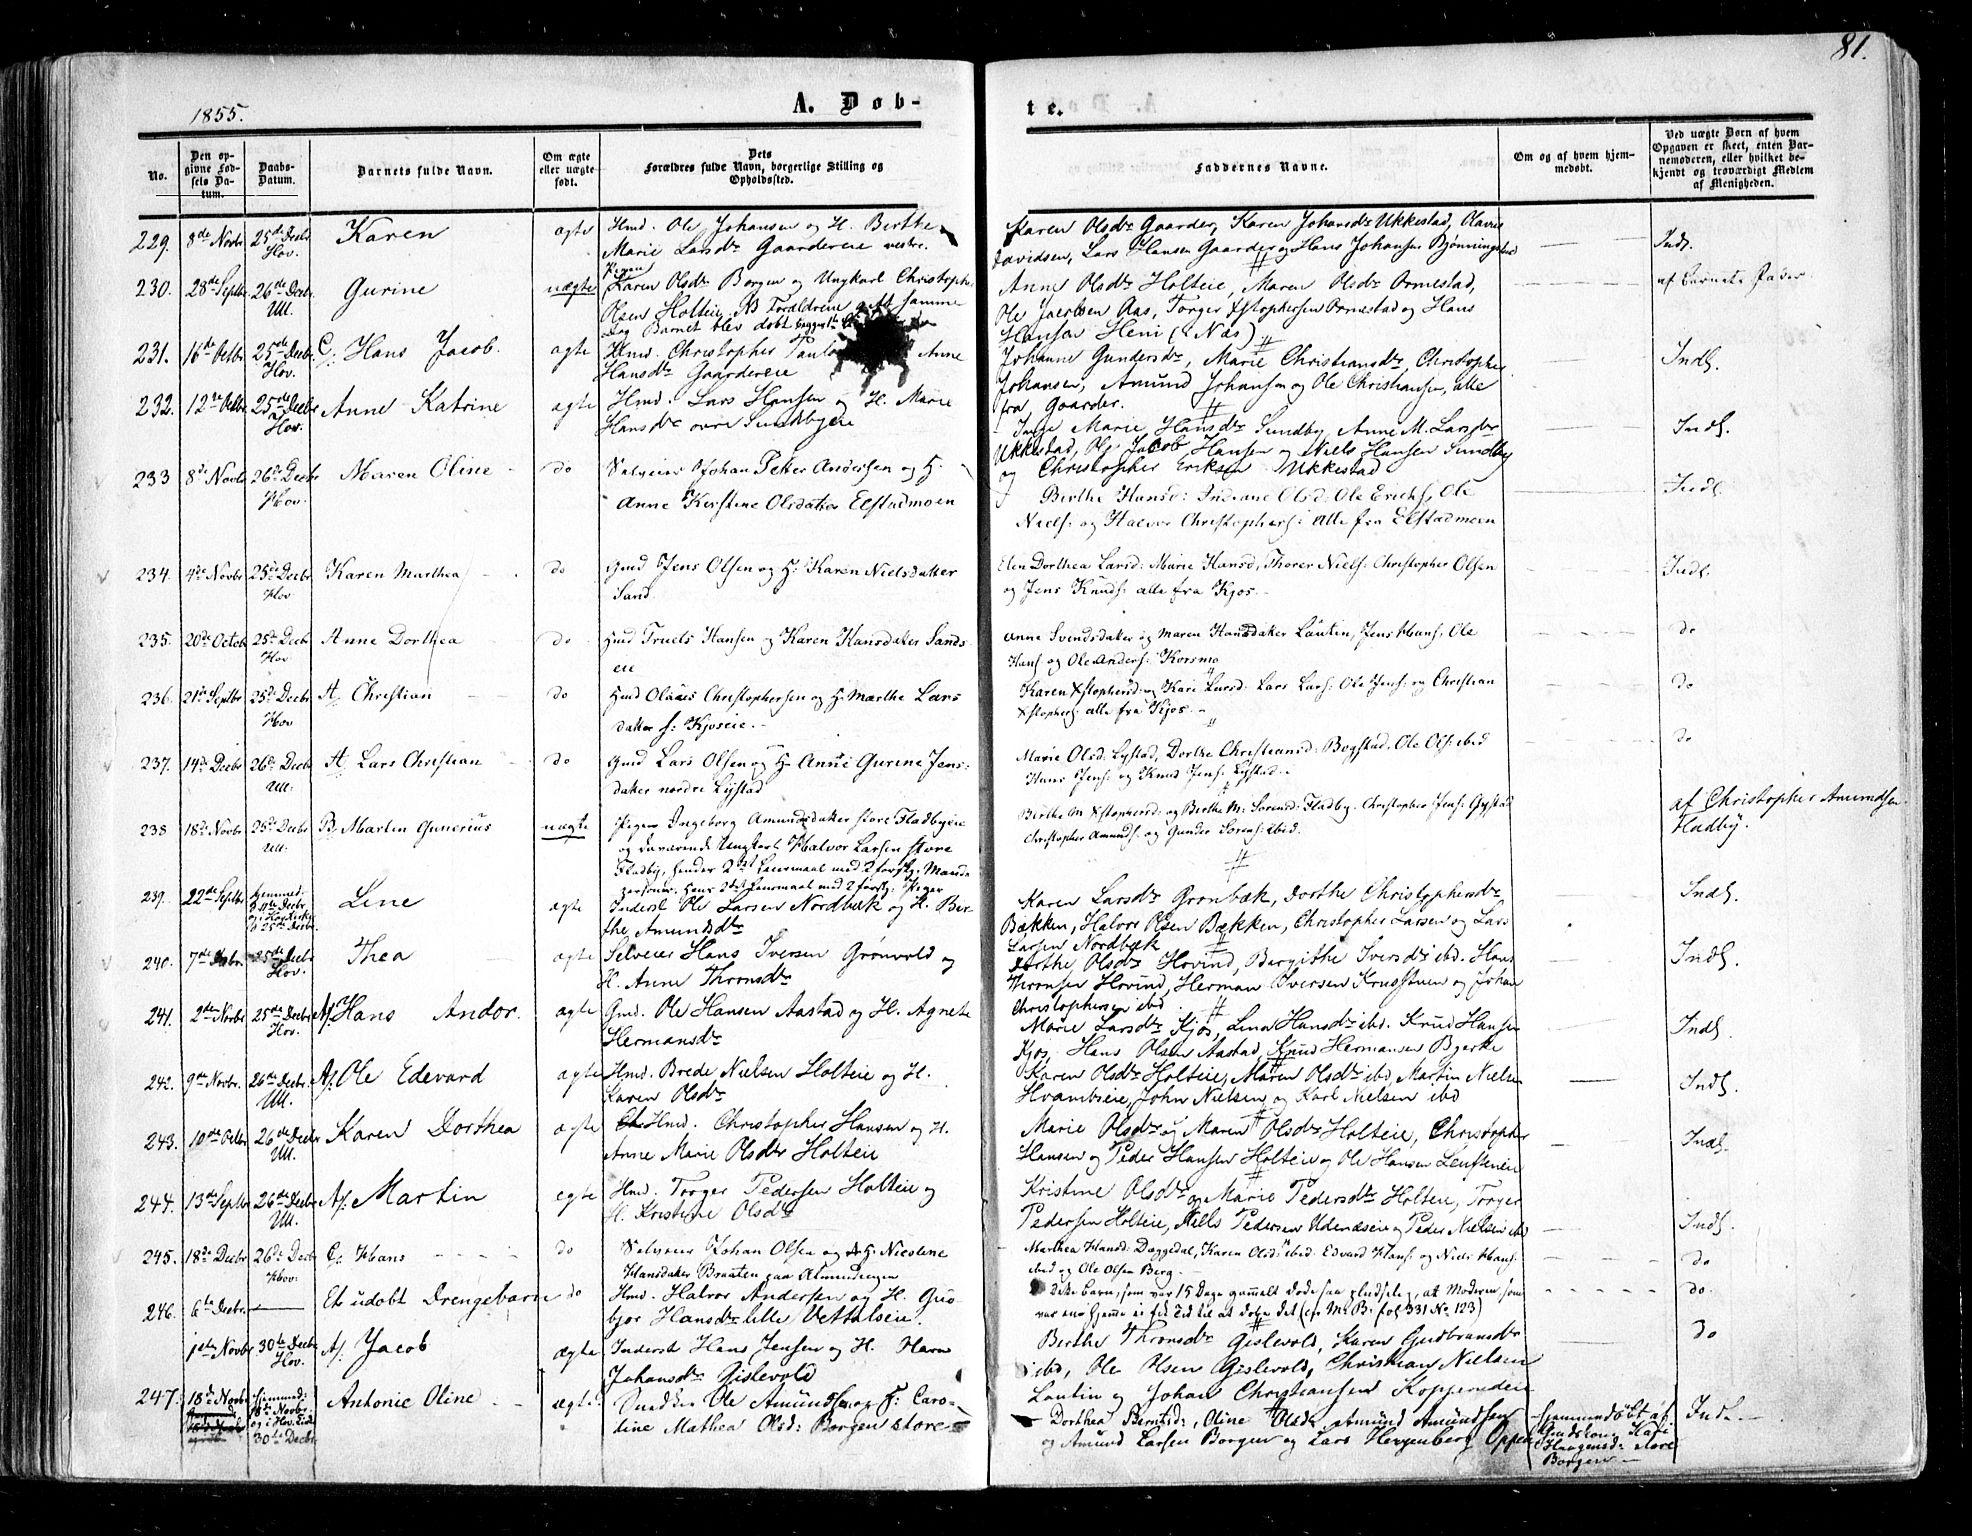 81.
1855.
A. Døb-
te.
No.
Den op-
givne Fød-
sels Da-
tum.
Daabs-
Datum.
Barnets fulde Navn.
Om ægte
eller uægte
født.
Dets
Forældres fulde Navn, borgerlige Stilling og
Opholdssted.
Faddernes Navne.
Om og af hvem hjem-
medøbt.
Ved uægte Børn af hvem
Opgaven er skeet, enten Bar-
nemoderen, eller hvilket be-
kjendt og troværdigt Medlem
af Menigheden.
229. 8de Novbr 25de Decbr Karen ægte Hmd. Ole Johansen og H. Berthe
Hov. Marie Larsdtr Gaardereie vestre.
Karen Olsdtr Gaarder, Karen Johansdtr Ukkestad, Olaves
Davidsen, Lars Hansen Gaarder og Hans Johansen Bjønningstad
Indb.
230. 28de Septbr 26de Decbr Gurine uægte Pigen Karen Olsdtr Borgen og Ungkarl Christopher
Ull. Olsen Holteie, NB Forældrene gift samme
Dag Barnet blev døbt
Anne Olsdtr Holteie, Maren Olsdtr Ormestad,
Ole Jacobsen Aas, Torger Xstophersen Ormestad og Hans
Hansen Heni (Næs)
af Barnets Fader
231. 16de Octbr 25de Decbr C, Hans Jacob. ægte Hmd. Christopher Anne
Hov. Hansdtr Gaardereie
Johanne Gundersdtr, Marie Christiansdtr, Christopher
Johansen, Amund Johansen og Ole Christiansen, alle
fra Gaarder.
Indb.
232. 12te Octbr 25de Decbr Anne Katrine ægte Hmd. Lars Hansen og H. Marie
Hov. Hansdtr øvre Sundbyeie
Inge Marie Hansdtr Sundby, Anne M. Larsdtr
Ukkestad, Ole Jacob Hansen og Niels Hansen Sundby
og Christopher Eriksen Ukkestad
Indb.
233 8de Novbr 26de Decbr Maren Oline do Selveier Johan Peter Andersen og H.
Hov Anne Kirstine Olsdatter Elstadmoen
Berthe Hansd: Indiane Olsd: Ole Eriks, Ole
Niels: og Halvor Christophers: Alle fra Elstadmoen
Indb.
234. 4de Novbr 25de Decbr Karen Marthea do Gmd Jens Olsen og H: Karen Nielsdatter
Hov Sand.
Elen Dorthea Larsd: Marie Hansd, Thorer Niels: Christopher Olsen
og Jens Knuds: alle fra Kjos.
Indb.
235. 20de Octob 25de Decbr Anne Dorthea do Hmd Truels Hansen og Karen Hansdatter Sands
Hov eie
Anne Svendsdatter og Maren Hansdatter Lautin, Jens Hans, Ole
Hans og Ole Anders: Korsmo
do
236. 21de Septbr 25de Decbr A, Christian do Hmd Olaves Christophersen og H: Marthe Lars
Hov datter s: Kjoseie.
Karen Xstophersd: og Kari Larsd: Lars Lars: Ole Jens: og Christian
Xstophers: alle fra Kjos.
do
237. 14de Decbr 26de Decbr A, Lars Christian do Gmd Lars Olsen og H. Anne Gurine Jens:
Ull: datter nordre Lystad
Marie Olsd: Lystad, Dorthe Christiansd: Bogstad, Ole Ols: ibid
Hans Jens: og Knud Jens: Lystad.
do
238 18de Novbr 25de Decbr B, Martin Gunerius uægte Pigen Ingeborg Amundsdatter store Fladbyeie
Ull: og daværende Ungkarl Halvor Larsen store
Fladby, hendes 2det Leiermaal med 2 forskj. Mands
personer. Hans 2det Leiermaal med 2 forskj: Piger
Berthe M Xstophersd: og Berthe M: Sørensd: Fladby. Christopher Jens: Gystad
Christopher Amunds: og Gunder Sørens: ibid.
af Christopher Amundsen
Fladby.
239. 22de Septbr hjemmed: Lene ægte Inderst Ole Larsen Nordbæk og H. Ber-
25de Decbr the Amundsdtr
Karen Larsdtr Grønbæk, Dorthe Christophersdtr
Bækken, Halvor Olsen Bækken, Christopher Larsen og Lars
Larsen Nordbæk
Indb.
240. 7de Decbr 25de Decbr Thea ægte Selveier Hans Iversen Grønvold og
Hov. H. Anne Thronsdtr
Dorthe Olsdtr Hovind, Bergithe Iversdtr ibd. Hans
Thronsen Hovind, Herman Iversen og Johan
Christophersen ibd
Indb.
241. 2den Novbr 25de Decbr A/. Hans Andor. ægte Gmd. Ole Hansen Aastad og H. Agnete
Hov. Hermansdtr
Marie Larsdtr Kjos, Lina Hansdtr ibd. Knud Hansen
Kjos, Hans Olsen Aastad, Knud Hermansen Bjerke
Indb.
242. 9de Novbr. 26de Decbr A/. Ole Edevard ægte Hmd. Brede Nielsen Holteie og H.
Ull. Karen Olsdtr
Karen Olsdtr Holteie, Maren Olsdtr ibd, Martin Nielsen
Hvambseie, John Nielsen og Karl Nielsen ibd
Indb.
243. 10de Octbr 26de Decbr Karen Dorthea ægte Hmd. Christopher Hansen og H.
Ull. Anne Marie Olsdtr Holteie
Marie Olsdtr og Maren Olsdtr Holteie, Christopher
Hansen og Peder Hansen Holteie og Ole Hansen
Indb.
244. 13de Septbr 26de Decbr A/. Martin ægte Hmd. Torger Pedersen Holteie og
Ull. H. Kristine Olsdtr
Kristine Olsdtr og Marie Pedersdtr Holteie, Torger
Pedersen Holteie, Niels Pedersen Udenæseie og Peder Nielsen ibd
Indb.
245. 18de Decbr 26de Decbr C, Hans do Selveier Johan Olsen og H: Nicoline
Hov: Hansdatter Braaten paa Almindingen
Marthea Hansd: Daggedal, Karen Olsd: ibid: Edvard Hans: og Niels Hans:
ibid og Ole Olsen Berg.
do
246. 6te Decbr. Et udøbt Drengebarn do Hmd. Halvor Andersen og H. Gu-
bjør Hansdtr lille Vettalseie.
Dette Barn, som var 15 Dage gammelt døde saa pludselig, at Moderen som
var ene hjemme ei fik Tid til at døbe det (cfr M. B. fol 331 No. 123)
do.
1ste Novbr 30te Decbr A/. Jacob ægte Inderst Hans Jensen og H. Maren
Hov. Johansdtr Gislevold
Berthe Thronsdtr Gislevold, Karen Gudbransdtr
ibd, Ole Olsen Gislevold, Christian Nielsen
Lautin og Johan Christiansen Koppereie
Do
247. 18de Novbr hjemmed: Antonie Oline ægte Snedker Ole Amundsen og H: Caro-
18de Novbr line Mathea Olsd: Borgen store
og i Hov Kirke
30te Decbr
Dorthea Berntsd:, Oline Olsd, Amund Amundsen
og Amund Larsen Borgen og Lars Hergenberg Oppen
Hjemmedøbt af
Gjordekone Kari
Haagensd: store
Borgen
Indb.